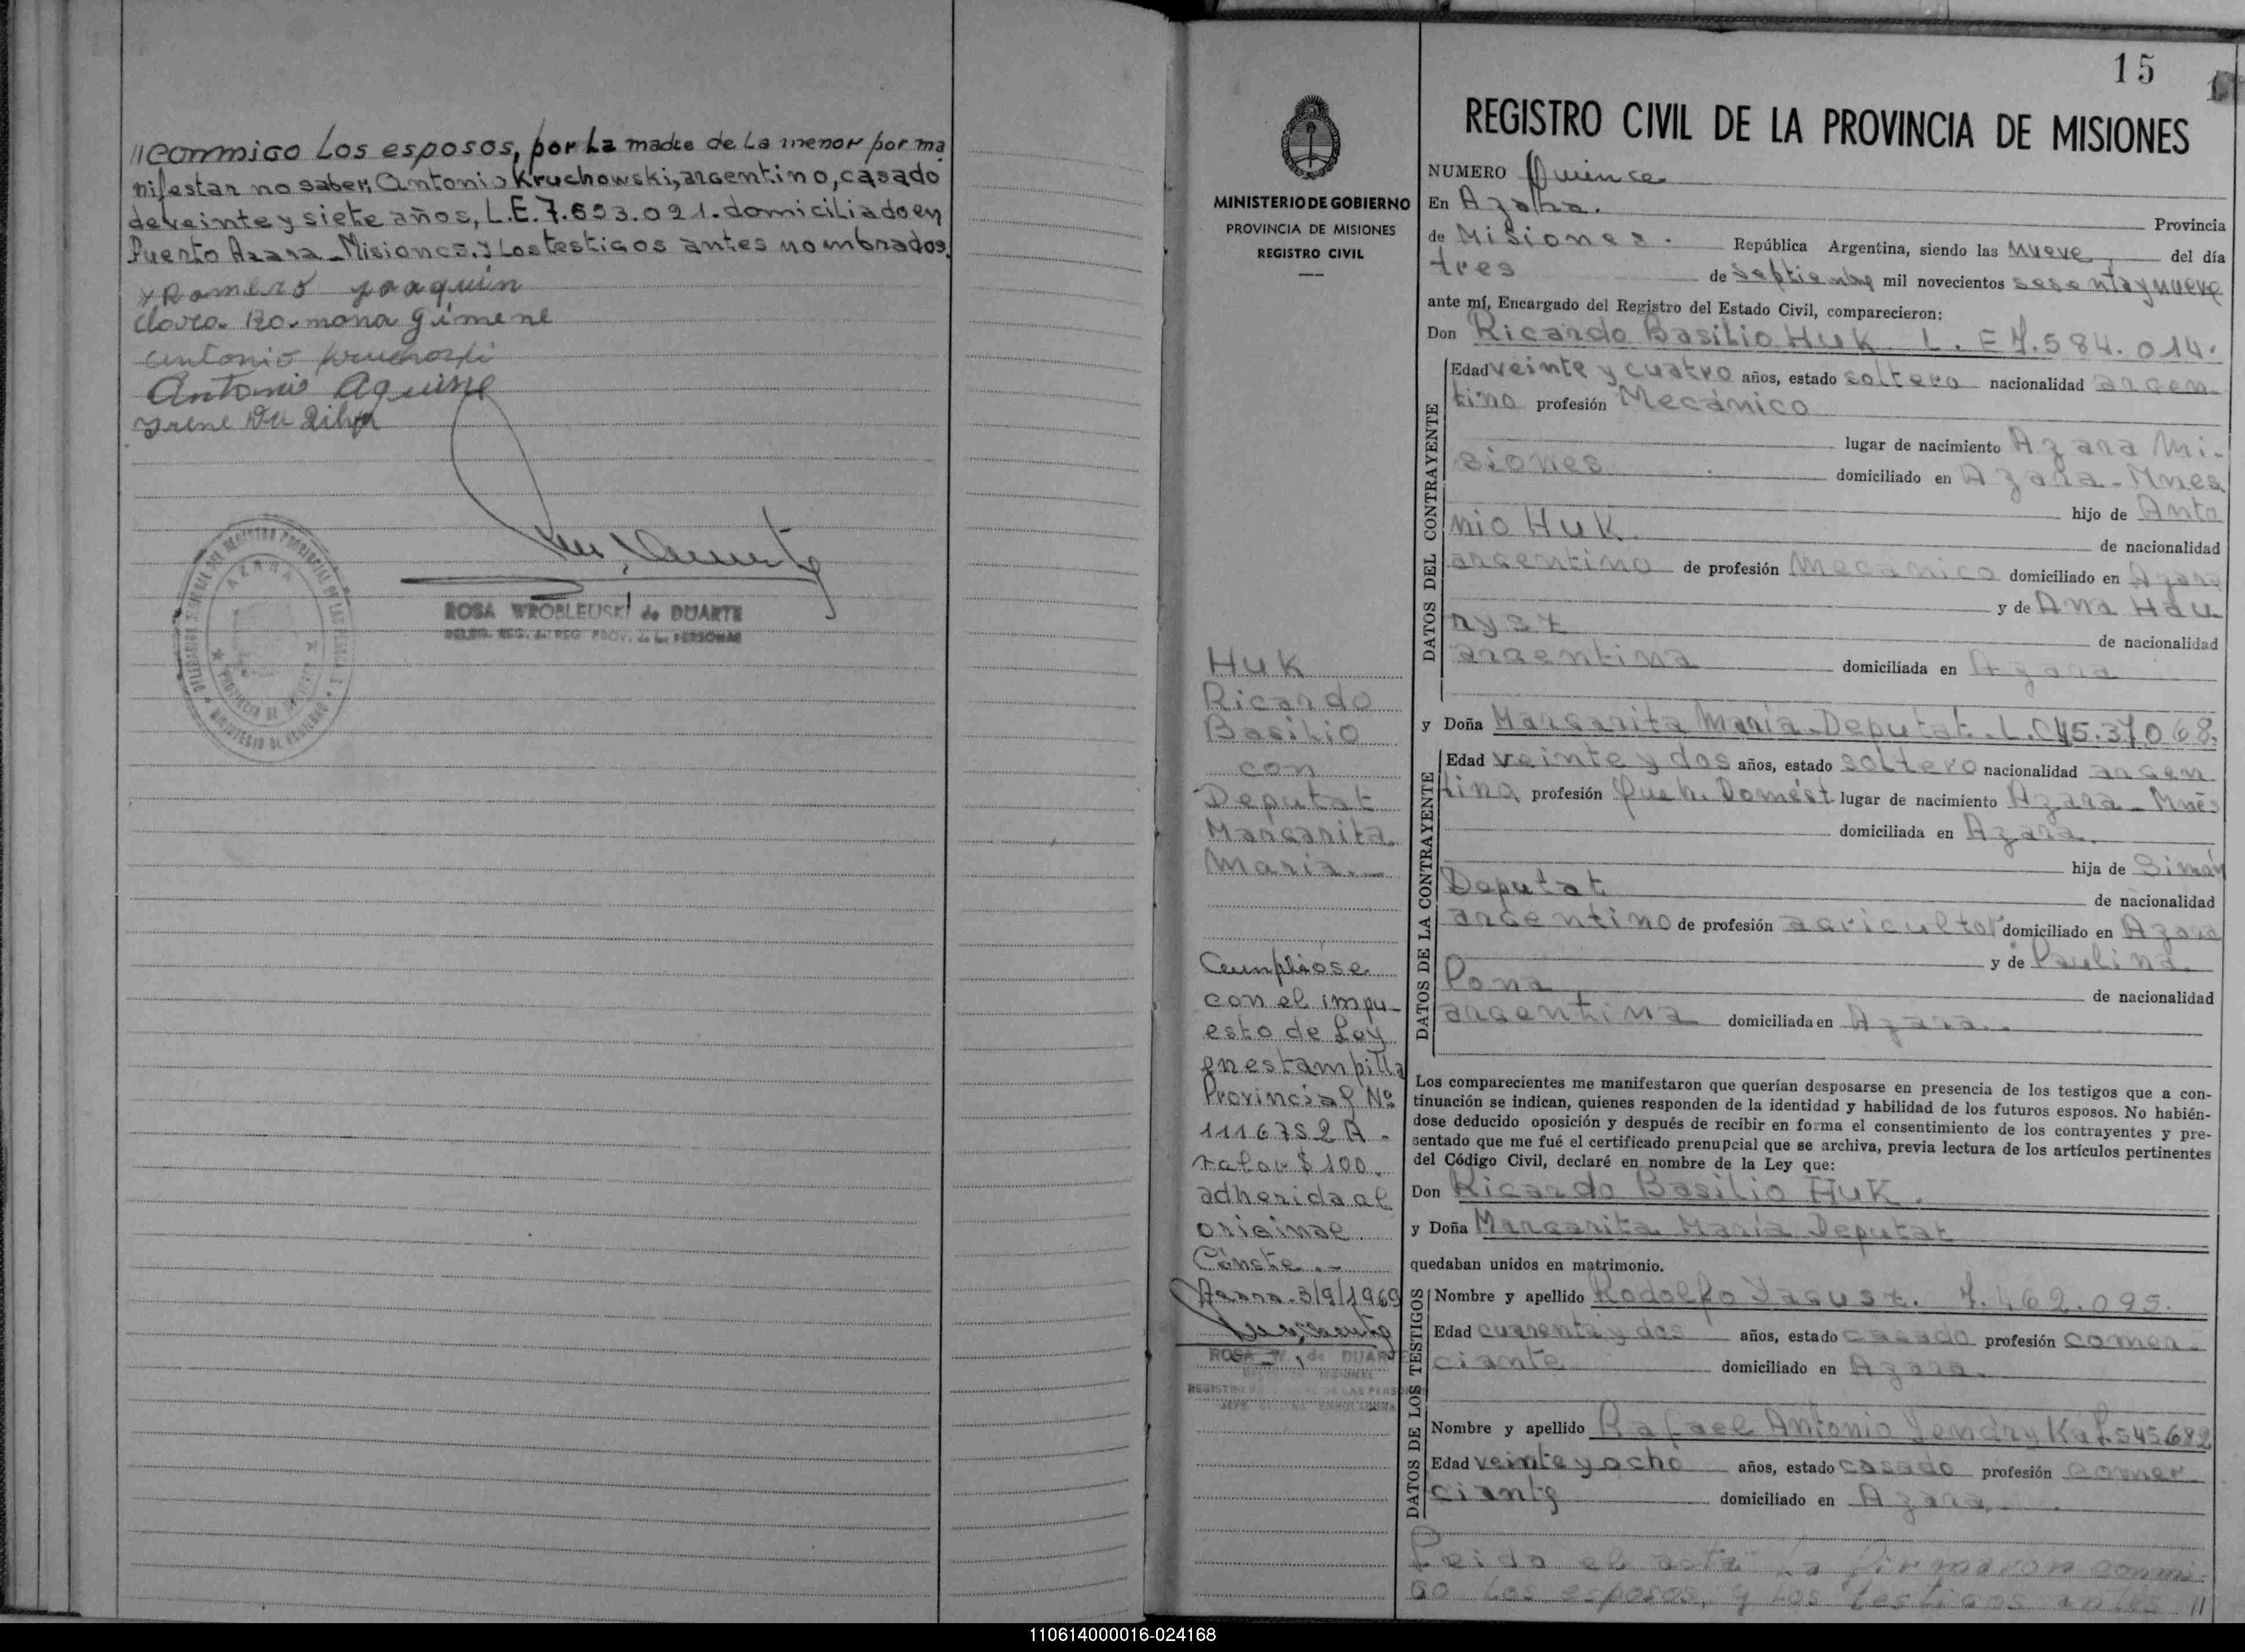 //conmigo Los esposos, por La madre de La menor por ma
nifestar no saber; Antonio Kruchowski, argentino, casado
de veinte y siete años, L.E. 7.653.021. domiciliado en
Puerto Azara - Misiones. y Los testigos antes nombrados.
Romero Joaquin
Clara Romona Gimene
Antonio
Antonio Aguirre
Irene
AZARA
ROSA WROBLEUSKI de DUARTE
15
MINISTERIO DE GOBIERNO
PROVINCIA DE MISIONES
REGISTRO CIVIL
Huk
Ricardo
Basilio
con
Deputat
Margarita
María.-
Cumplióse
con el impu-
esto de Ley
en estampilla
Provincial Nº
1116752 A -
valor $ 100.
adherida al
original.
Cónste.-
Azara. 3/9/1969
ROSA W. de DUARTE
REGISTRO CIVIL DE LA PROVINCIA DE MISIONES
NUMERO Quince
En Azara. Provincia
de Misiones. República Argentina, siendo las nueve del día
tres de Septiembre mil novecientos sesenta y nueve
ante mí, Encargado del Registro del Estado Civil, comparecieron:
Don Ricardo Basilio Huk L. E 7.584.014.
DATOS DEL CONTRAYENTE
Edad veinte y cuatro años, estado soltero nacionalidad argen
tino profesión Mecánico
lugar de nacimiento Azara Mi-
siones domiciliado en Azara - Mnes
hijo de Anto
nio Huk. de nacionalidad
argentino de profesión mecánico domiciliado en Azara
y de Ana Hau
rysz de nacionalidad
argentina domiciliada en Azara
y Doña Margarita María Deputat. L.C
DATOS DE LA CONTRAYENTE
Edad veinte y dos años, estado soltero nacionalidad argen
tina profesión Queh. Domést lugar de nacimiento Azara - Mnes
domiciliada en Azara.
hija de Simón
Deputat de nacionalidad
argentino de profesión agricultor domiciliado en Azara
y de Paulina
Pona de nacionalidad
argentina domiciliada en Azara.
Los comparecientes me manifestaron que querían desposarse en presencia de los testigos que a con-
tinuación se indican, quienes responden de la identidad y habilidad de los futuros esposos. No habién-
dose deducido oposición y después de recibir en forma el consentimiento de los contrayentes y pre-
sentado que me fué el certificado prenupcial que se archiva, previa lectura de los artículos pertinentes
del Código Civil, declaré en nombre de la Ley que:
Don Ricardo Basilio Huk.
y Doña Margarita María Deputat
quedaban unidos en matrimonio.
DATOS DE LOS TESTIGOS
Nombre y apellido Rodolfo Jagusz. 7.462.095.
Edad cuarenta y dos años, estado casado profesión comer-
ciante domiciliado en Azara.
Nombre y apellido Rafael Antonio Jendryka
Edad veinte y ocho años, estado casado profesión comer
ciante domiciliado en Azara.
Leida el acta la firmaron conmi-
go los esposos, y los testigos antes //
110614000016-024168